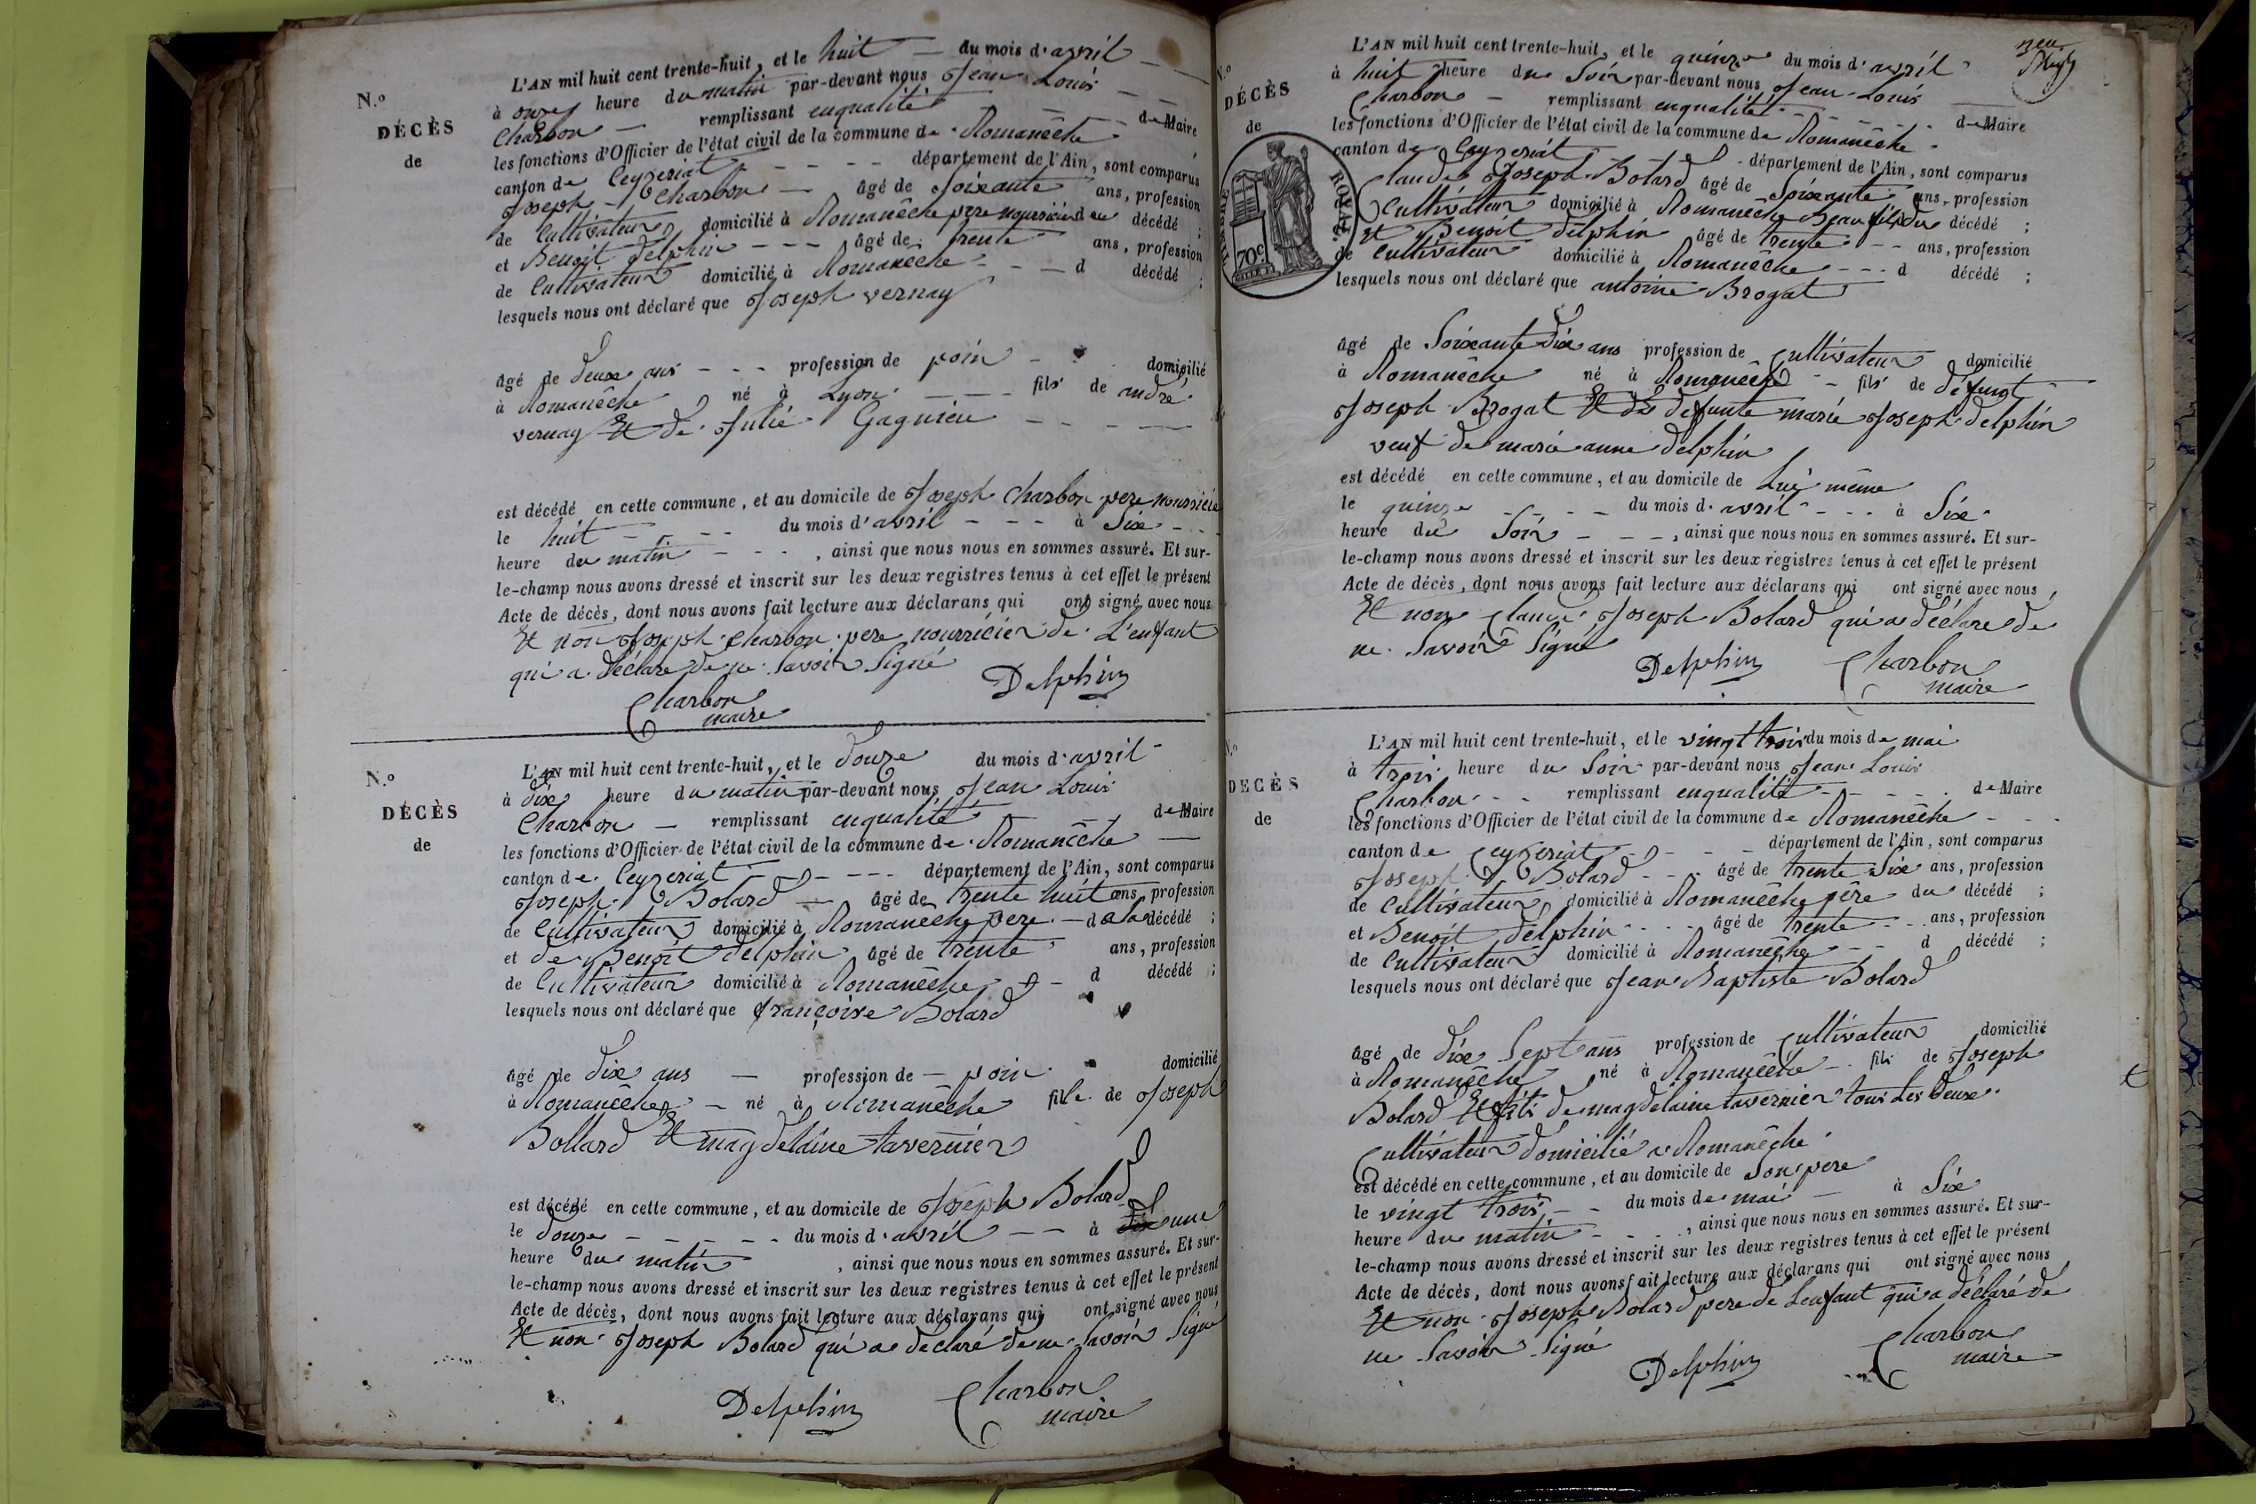 N.º
DÉCÈS
de
L'AN mil huit cent trente-huit, et le huit du mois d'avril
à onze heure du matin par-devant nous Jean Louis
Charbon remplissant enqualité de Maire
les fonctions d'Officier de l'état civil de la commune de Romanêche
canton de Ceyzeriat département de l'Ain, sont comparus
Joseph Charbon âgé de Soixante ans, profession
de Cultivateur domicilié à Romanêche pere nourricier du décédé ;
et Benoit delphin âgé de trente ans, profession
de Cultivateur domicilié à Romanêche d décédé ;
lesquels nous ont déclaré que Joseph vernay
âgé de deux ans profession de poin domicilié
à Romanêche né à Lyon fils de andré
vernay Et de Julie Gagnieu
est décédé en cette commune, et au domicile de Joseph Charbon pere nourricie
le huit du mois d'avril à Six
heure du matin, ainsi que nous nous en sommes assuré. Et sur-
le-champ nous avons dressé et inscrit sur les deux registres tenus à cet effet le présent
Acte de décès, dont nous avons fait lecture aux déclarans qui ont signé avec nous
Et non Joseph Charbon pere nourricier de L'enfant
qui a déclare de ne Savoir Signé
Charbon Delphin
maire
N.º
DÉCÈS
de
L'AN mil huit cent trente-huit, et le douze du mois d'avril
à dix heure du matin par-devant nous Jean Louis
Charbon remplissant enqualité de Maire
les fonctions d'Officier de l'état civil de la commune de Romanêche
canton de Ceyzeriat département de l'Ain, sont comparus
Joseph Bolard âgé de trente huit ans, profession
de Cultivateur domicilié à Romanêche pere d a la décédé ;
et de Benoit delphin âgé de trente ans, profession
de Cultivateur domicilié à Romanêche d décédé ;
lesquels nous ont déclaré que françoise Bolard
âgé de dix ans profession de poin domicilié
à Romanêche né à Romanêche fille de Joseph
Bollard Et magdelaine tavernier
est décédé en cette commune, et au domicile de Joseph Bolard
le douze du mois d'avril à une
heure du matin, ainsi que nous nous en sommes assuré. Et sur-
le-champ nous avons dressé et inscrit sur les deux registres tenus à cet effet le présent
Acte de décès, dont nous avons fait lecture aux déclarans qui ont signé avec nous
Et non Joseph Bolard qui a declaré de ne Savoir Signé
Delphin Charbon
maire
N.º
DÉCÈS
de
TIMBRE ROYAL.
70 c.
L'AN mil huit cent trente-huit, et le quinze du mois d'avril
à huit heure du Soir par-devant nous Jean Louis
Charbon remplissant enqualité de Maire
les fonctions d'Officier de l'état civil de la commune de Romanêche
canton de Ceyzeriat département de l'Ain, sont comparus
Claude Joseph Bolard âgé de Soixante ans, profession
Cultivateur domicilié à Romanêche Beau fils du décédé ;
Et Benoit delphin âgé de trente ans, profession
de Cultivateur domicilié à Romanêche d décédé ;
lesquels nous ont déclaré que antoine Brogat
âgé de Soixante Dix ans profession de Cultivateur domicilié
à Romanêche né à Romanêche fils de défunt
Joseph Brogat Et de défunte marie Joseph delphin
veuf de marie anne delphin
est décédé en cette commune, et au domicile de Lui même
le quinze du mois d'avril à Six
heure du Soir, ainsi que nous nous en sommes assuré. Et sur-
le-champ nous avons dressé et inscrit sur les deux registres tenus à cet effet le présent
Acte de décès, dont nous avons fait lecture aux déclarans qui ont signé avec nous,
Et non Claude Joseph Bolard qui a déclare de
ne Savoir Signé
Delphin Charbon
maire
N.º
DÉCÈS
de
L'AN mil huit cent trente-huit, et le vingt trois du mois de mai
à trois heure du Soir par-devant nous Jean Louis
Charbon remplissant enqualité de Maire
les fonctions d'Officier de l'état civil de la commune de Romanêche
canton de Ceyzeriat département de l'Ain, sont comparus
Joseph Bolard âgé de trente Six ans, profession
de Cultivateur domicilié à Romanêche père du décédé ;
et Benoit delphin âgé de trente ans, profession
de Cultivateur domicilié à Romanêche d décédé ;
lesquels nous ont déclaré que Jean Baptiste Bolard
âgé de dix Sept ans profession de Cultivateur domicilié
à Romanêche né à Romanêche fils de Joseph
Bolard Et fils de magdelaine tavernier tous Les Deux
Cultivateur domicilié a Romanêche
est décédé en cette commune, et au domicile de Son pere
le vingt trois du mois de mai à Six
heure du matin, ainsi que nous nous en sommes assuré. Et sur-
le-champ nous avons dressé et inscrit sur les deux registres tenus à cet effet le présent
Acte de décès, dont nous avons fait lecture aux déclarans qui ont signé avec nous
Et non Joseph Bolard pere de Lenfant qui a déclaré de
ne Savoir Signé
Delphin Charbon
maire